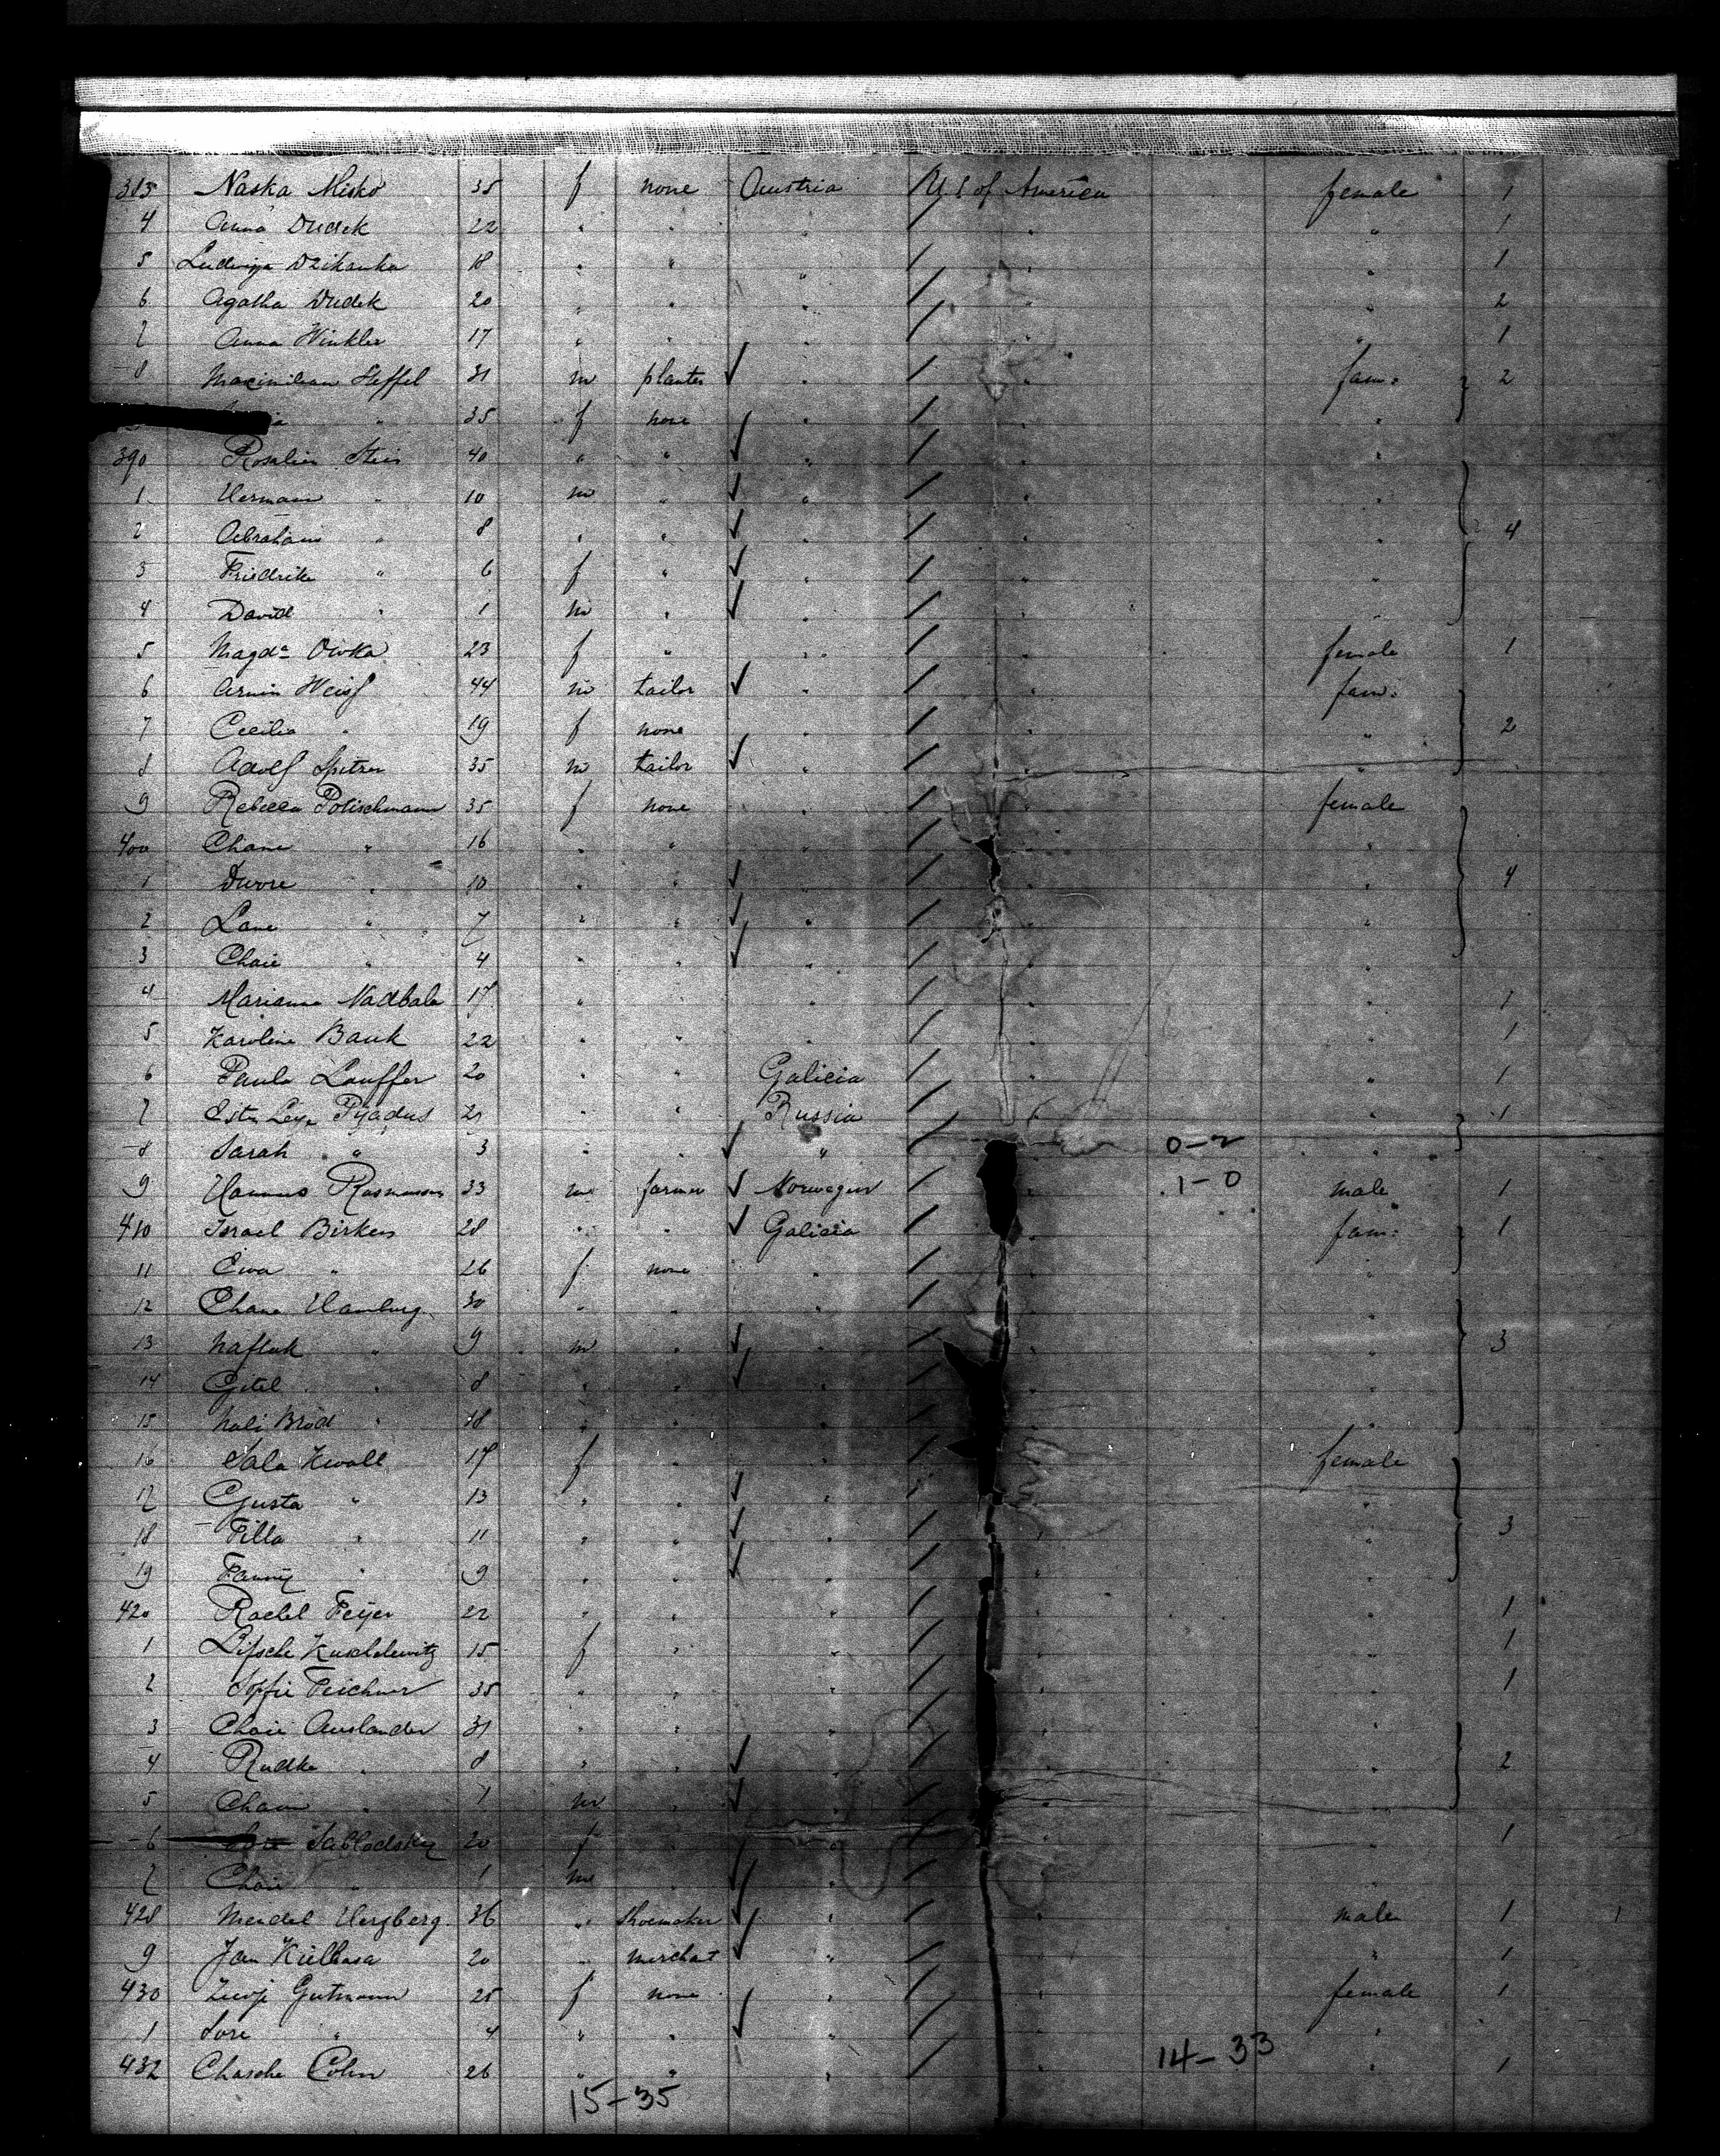 313 Naska Misko 35 f none Austria U S of America female 1
4 Anna Dudek 22 " " " " " 1
5 Ludwiga Dzikanka 18 " " " " " 1
6 Agatha Dudek 20 " " " " " 2
7 Anna Winkler 17 " " " " " 1
8 Maximilian Steffel 31 m planter " " fam: 2
" 35 f none " " "
390 Rosalien Stein 40 " " " " "
1 Hermann " 10 m " " " "
2 Abraham " 8 " " " " " 4
3 Friedrike " 6 f " " " "
4 David " 1 m " " " "
5 Magda Owka 23 f " " " female 1
6 Armin Weiss 44 m tailor " " fam:
7 Cecilia " 19 f none " " " 2
8 Adolf Spitzer 35 m tailor " " "
9 Rebecca Potischmann 35 f none " " female
400 Chane " 16 " " " " "
1 Dwore " 10 " " " " " 4
2 Lane " 7 " " " " "
3 Chaie " 4 " " " " "
4 Marianna Nadbala 17 " " " " 1
5 Karoline Bauk 22 " " " " " 1
6 Paula Lauffer 20 " " Galicia " " 1
7 Ester Leye Pijadus 21 " " Russia " " 1
8 Sarah " 3 " " " 0-2 "
9 Hannus Rasmussen 33 m farmer Norwegen " 1-0 male 1
410 Israel Birken 28 " " Galicia " fam: 1
11 Ewa " 26 f none " " "
12 Chane Hamburg 30 " " " " "
13 Naftuk " 9 m " " " " 3
14 Gitel " 8 " " " " "
15 Mali Brod " 18 " " " " "
16 Sala Kwall 17 f " female
17 Gusta " 13 " " " "
18 Tilla " 11 " " " " " 3
19 Fanny " 9 " " " " "
420 Rachel Feijer 22 " " " " " 1
1 Lipsche Kuschlewitz 15 f " " " 1
2 Soffie Teichner 35 " " " " " 1
3 Chaie Auslander 31 " " " " "
4 Rudke " 8 " " " " " 2
5 Chaim " 1 m " " "
6 Sablodsky 20 f " " " 1
7 Chaie " 1 m " " " "
428 Mendel Herzberg 36 " shoemaker " " male 1
9 Jan Kielbasa 20 " merchat " " " 1
430 Zewje Gutmann 25 f none " " female 1
1 Sore " 4 " " " " "
432 Chasche Cohn 26 " " " " 14-33 " 1
15-35